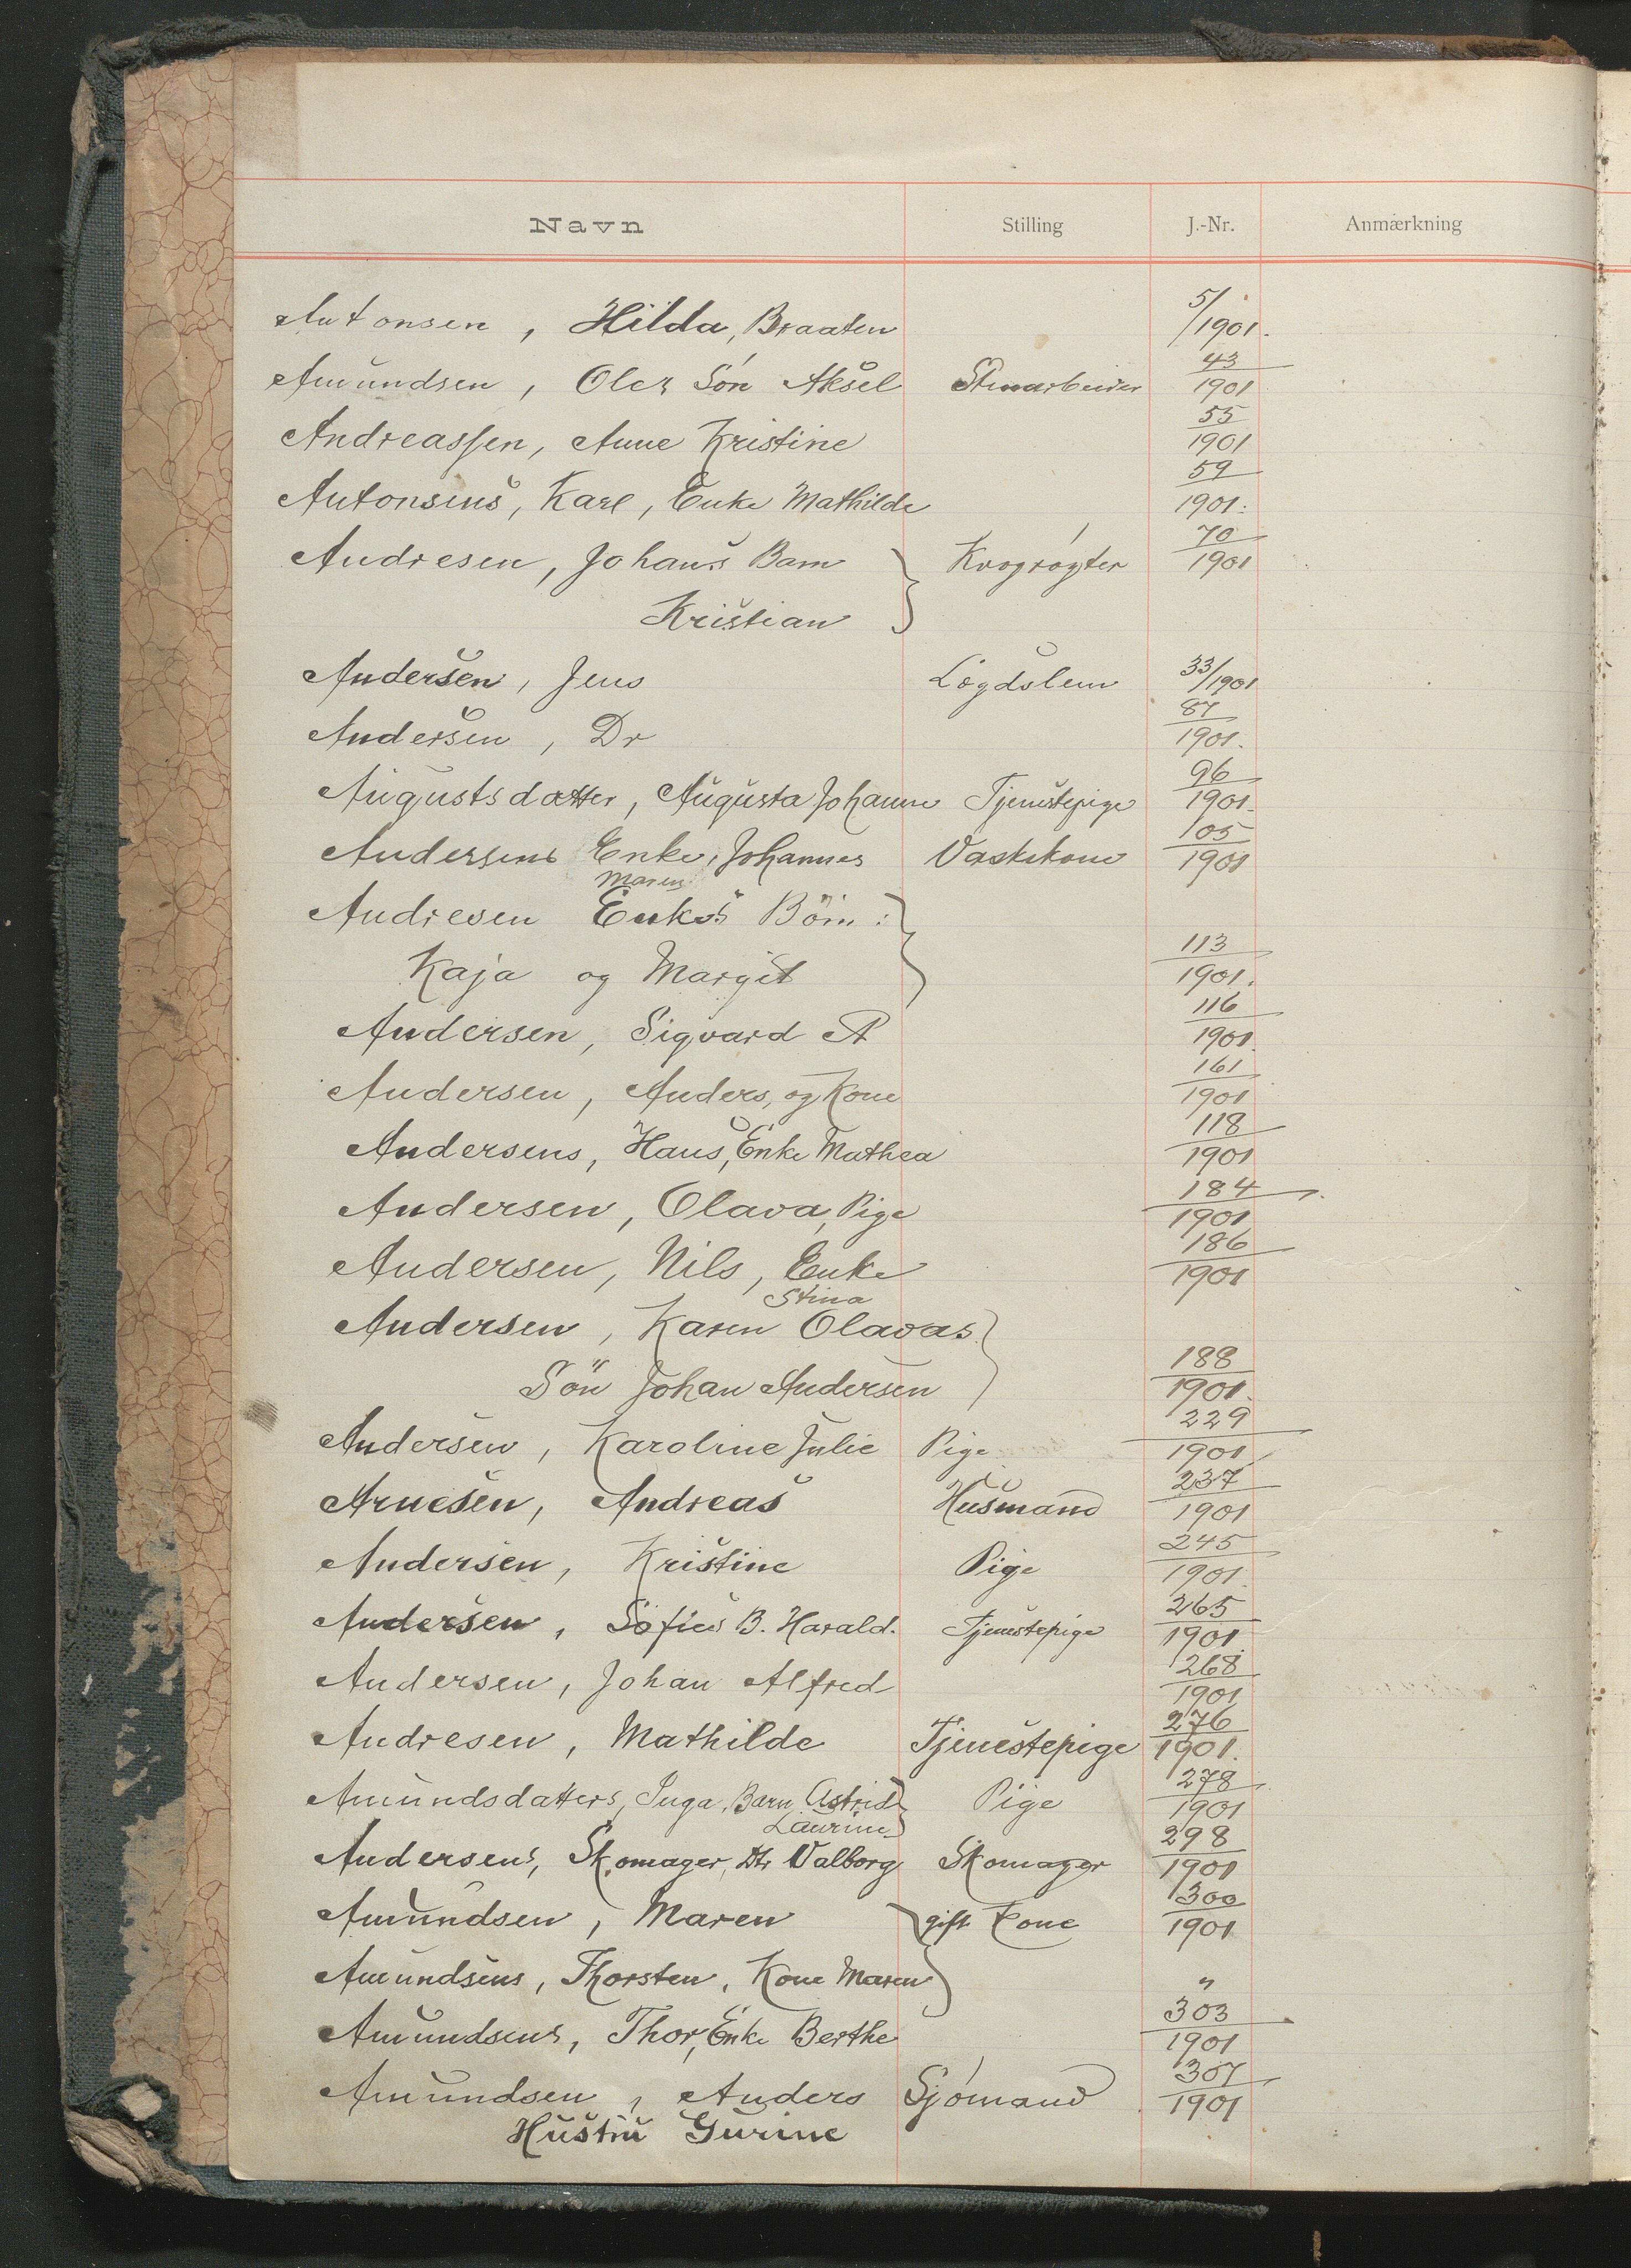 Navn Stilling J.-Nr. Anmærkning
Antonsen, Hilda, Braaten 5/1901.
Amundsen, Oles Søn Aksel Stenarbeider 43/1901
Andreassen, Anne Kristine 55/1901
Antonsens, Karl, Enke Mathilde 59/1901.
Andresen, Johans Barn } Krøgrøgter 70/1901
Kristian
Andersen, Jens Lægdslem 33/1901
Andersen, Dr 87/1901.
Augustsdatter, Augusta Johanne Tjenestepige 96/1901.
Andersens Enke, Johannes Vaskekone 105/1901
Maren
Andresen Enkes Børn: }
Kaja og Margit 113/1901.
Andersen, Sigvard A 116/1901.
Andersen, Anders, og Kone 161/1901
Andersens, Hans, Enke Mathea 118/1901
Andersen, Olava, Pige 184/1901
Andersen, Nils, Enke 186/1901
Stina
Andersen, Karen Olavas }
Søn Johan Andersen 188/1901.
Andersen, Karoline Julie Pige 229/1901
Arnesen, Andreas Husmand 237/1901
Andersen, Kristine Pige 245/1901.
Andersen, Sofies B. Harald. Tjenestepige 265/1901
Andersen, Johan Alfred 268/1901
Andresen, Mathilde Tjenestepige 276/1901.
Amundsdatters, Inga, Barn Astrid } Pige 278/1901
Laurine
Andersens, Skomager, Dtr Valborg Skomager 298/1901
Amundsen, Maren } gift Kone 300/1901
Amundsens, Thorsten, Kone Maren "
Amundsens, Thor, Enke Berthe 303/1901
Amundsen, Anders Sjømand 307/1901
Hustru Gurine